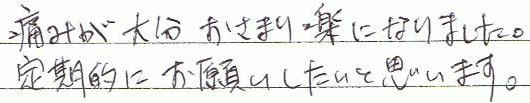 痛みが大分おさまり楽になりました。
定期的にお願いしたいと思います。